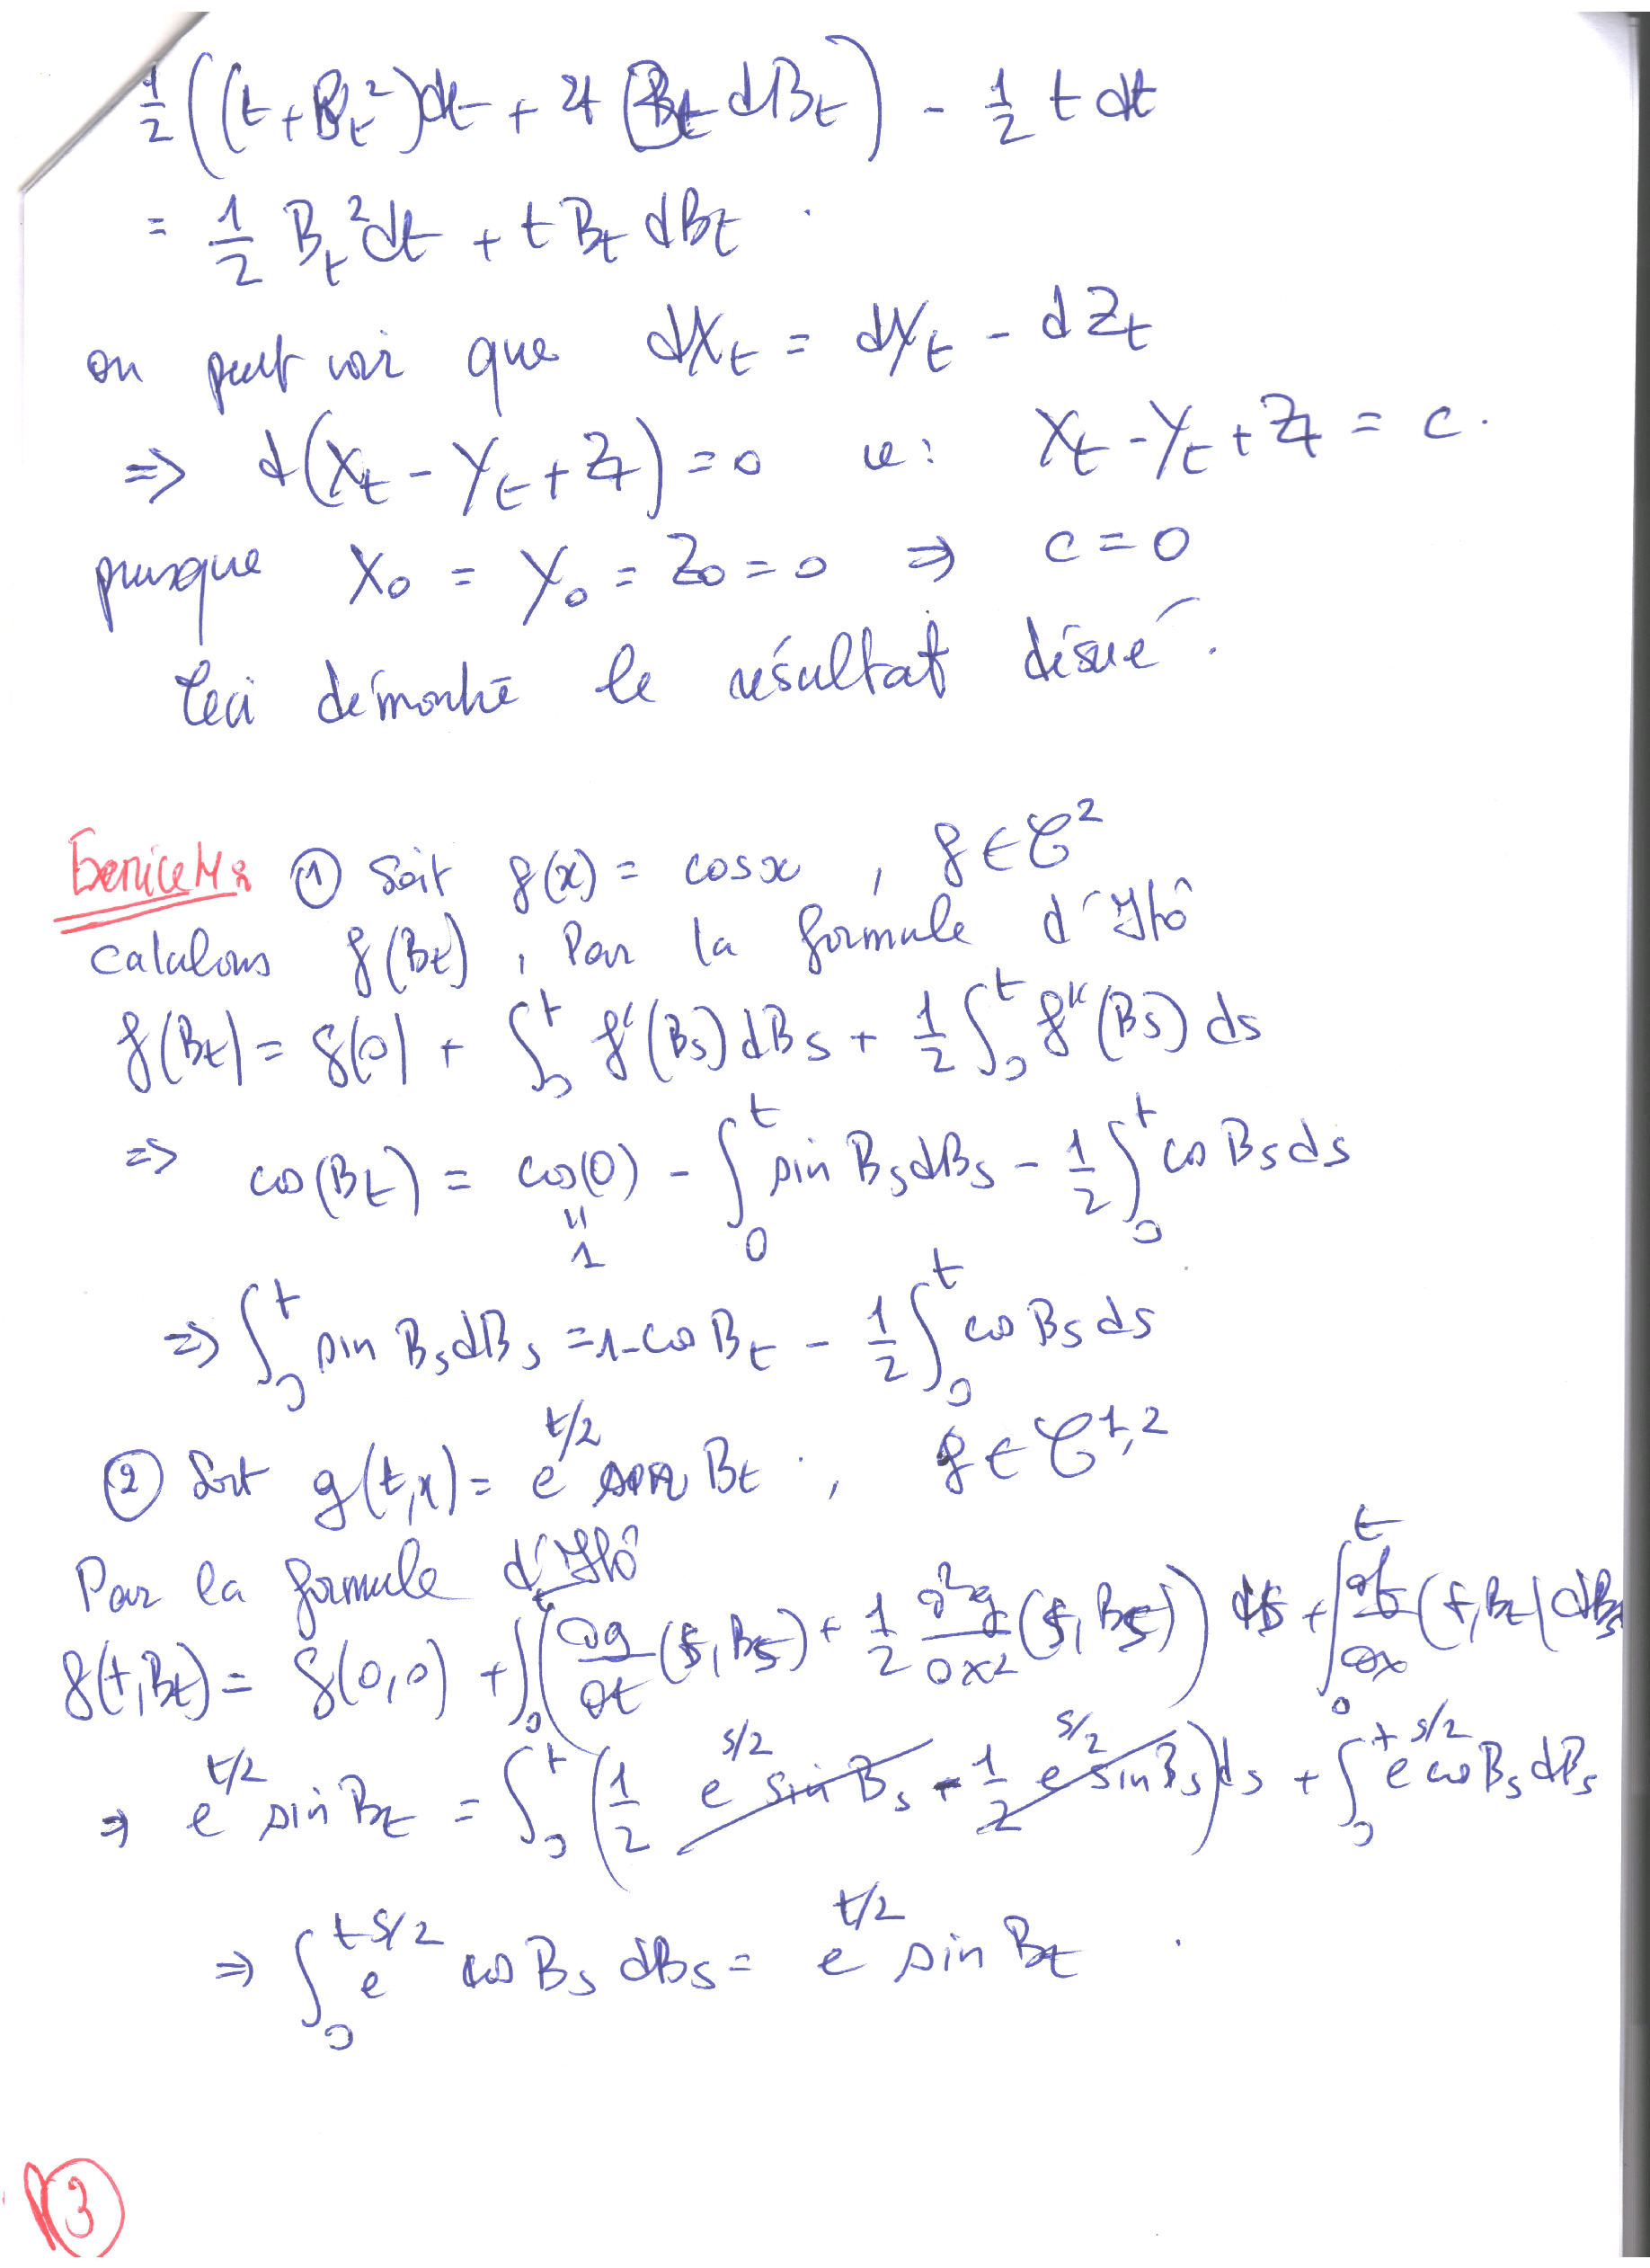 1/2 ((t + B_t^2)dt + 2t B_t dB_t) - 1/2 t dt
= 1/2 B_t^2 dt + t B_t dB_t .
on peut voir que dX_t = dY_t - dZ_t
=> d(X_t - Y_t + Z_t) = 0 ie: X_t - Y_t + Z_t = c.
puisque X_0 = Y_0 = Z_0 = 0 => c = 0
Ceci démontre le résultat désiré.
Exercice 4: ① Soit f(x) = cos x , f ∈ C^2
calculons f(B_t) , Par la formule d'Itô
f(B_t) = f(0) + ∫_0^t f'(B_s) dB_s + 1/2 ∫_0^t f''(B_s) ds
=> cos(B_t) = cos(0) - ∫_0^t sin B_s dB_s - 1/2 ∫_0^t cos B_s ds
" 1
=> ∫_0^t sin B_s dB_s = 1 - cos B_t - 1/2 ∫_0^t cos B_s ds
② Soit g(t,x) = e^{t/2} sin B_t . , g ∈ C^{1,2}
Par la formule d'Itô
g(t,B_t) = g(0,0) + ∫_0^t (∂g/∂t (s,B_s) + 1/2 ∂²g/∂x² (s,B_s)) ds + ∫_0^t ∂f/∂x (t,B_t) dB_s
=> e^{t/2} sin B_t = ∫_0^t (1/2 e^{s/2} sin B_s - 1/2 e^{s/2} sin B_s) ds + ∫_0^t e^{s/2} cos B_s dB_s
=> ∫_0^t e^{s/2} cos B_s dB_s = e^{t/2} sin B_t .
3